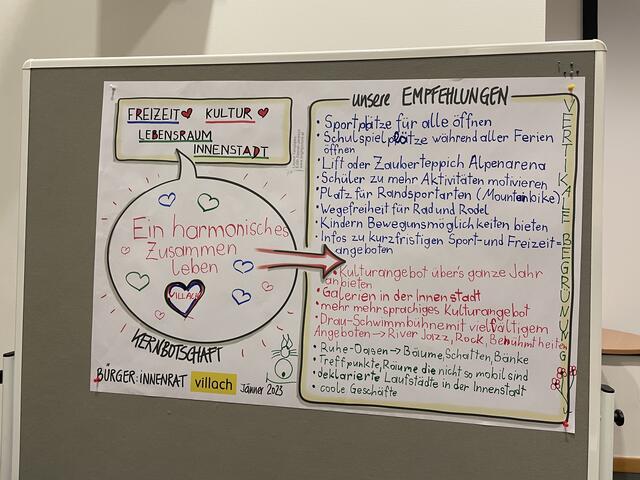 FREIZEIT KULTUR
LEBENSRAUM
INNENSTADT
Ein harmonisches
Zusammen
leben
VILLACH
KERNBOTSCHAFT
BÜRGER:INNENRAT villach Jänner 2023
unsere EMPFEHLUNGEN
• Sportplätze für alle öffnen
• Schulspielplätze während aller Ferien
öffnen
• Lift oder Zauberteppich Alpenarena
• Schüler zu mehr Aktivitäten motivieren
• Platz für Randsportarten (Mountainbike)
• Wegefreiheit für Rad und Rodel
• Kindern Bewegunsmöglichkeiten bieten
• Infos zu kurzfristigen Sport-und Freizeit=
angeboten
• Kulturangebot übers ganze Jahr
anbieten
• Galerien in der Innenstadt
• mehr mehrsprachiges Kulturangebot
• Drau-Schwimmbühne mit vielfältigem
Angeboten → River Jazz, Rock, Berühmtheiten
• Ruhe-Oasen → Bäume, Schatten, Bänke
• Treffpunkte, Räume die nicht so mobil sind
• deklarierte Laufstädte in der Innenstadt
• coole Geschäfte
VERTIKALE BEGRÜNUNG